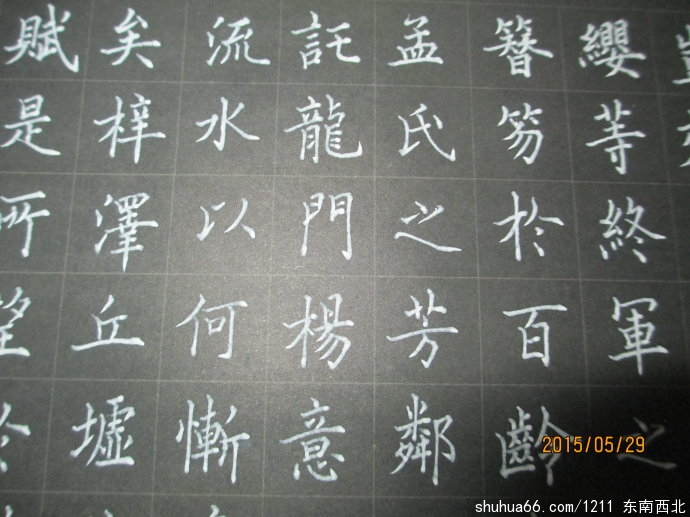 纓等終軍之
簪笏於百齡
孟氏之芳鄰
託龍門楊意
流水以何慚
矣梓澤丘墟
賦是所望於
2015/05/29
shuhua66.com/1211 东南西北